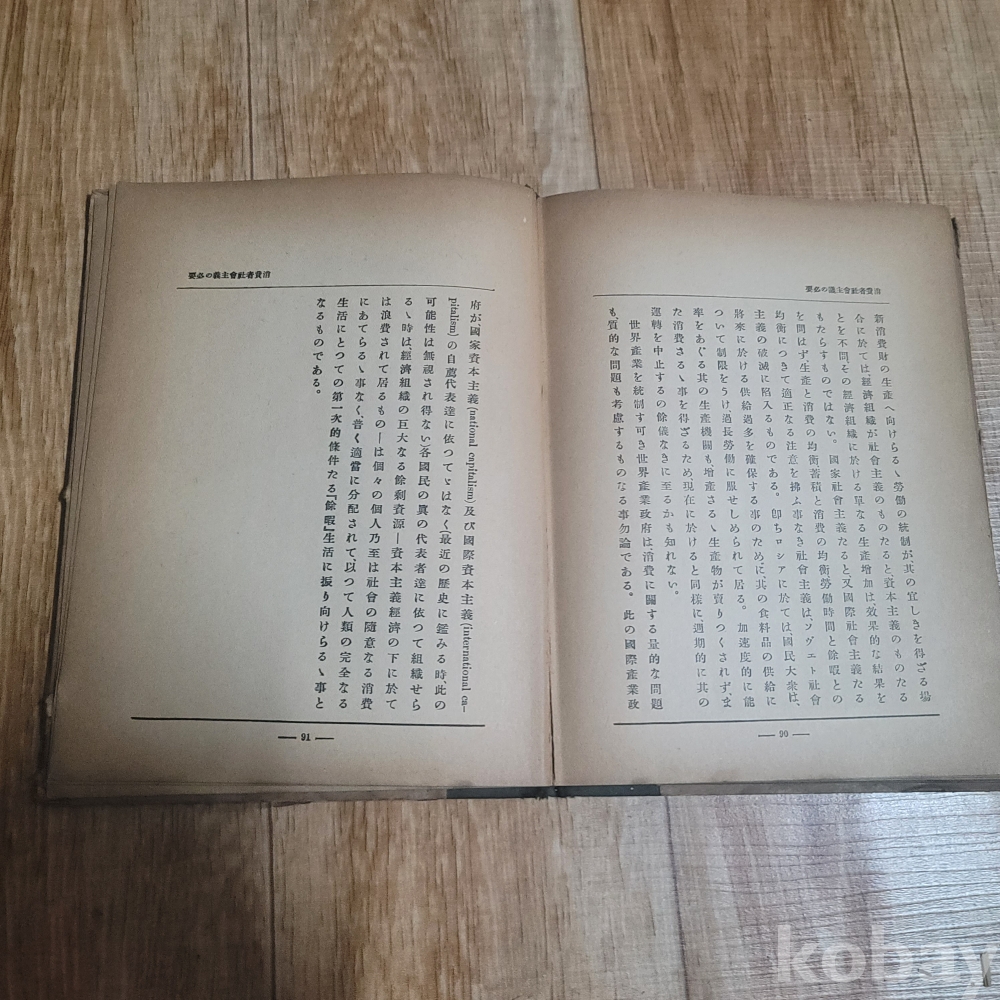 消費者社會主義の必要
新消費財の生產へ向けらるゝ勞働の統制が、其の宜しきを得ざる場
合に於ては、經濟組織が社會主義のものたると、資本主義のものたる
とを不問、その經濟組織に於ける單なる生產增加は、效果的な結果を
もたらすものではない。國家社會主義たると、又國際社會主義たる
を問はず、生產と消費の均衡、蓄積と消費の均衡、勞働時間と餘暇との
均衡につきて適正なる注意を拂ふ事なき社會主義は、ソヴエト社會
主義の破滅に陷入るものである。卽ちロシアに於ては、國民大衆は、
將來に於ける供給過多を確保する事のために、其の食料品の供給に
ついて制限をうけ、過長勞働に服せしめられて居る。加速度的に能
率をあぐる其の生產機關も、增產さるゝ生產物が賣りつくされず、ま
た消費さるゝ事を得ざるため、現在に於けると同樣に、週期的に其の
運轉を中止するの餘儀なきに至るかも知れない。
世界產業を統制す可き世界產業政府は、消費に關する量的な問題
も、質的な問題も考慮するものなる事勿論である。此の國際產業政
— 90 —
消費者社會主義の必要
府が、國家資本主義(national capitalism)及び國際資本主義(international ca-
pitalism)の自薦代表達に依つてゞはなく(最近の歷史に鑑みる時此の
可能性は無視され得ない)各國民の眞の代表者達に依つて組織せら
るゝ時は、經濟組織の巨大なる餘剩資源—資本主義經濟の下に於て
は浪費されて居るもの—は個々の個人乃至は社會の隨意なる消費
にあてらるゝ事なく、普く適當に分配されて、以つて人類の完全なる
生活にとつての第一次的條件たる『餘暇』生活に振り向けらるゝ事と
なるものである。
— 91 —
kobay